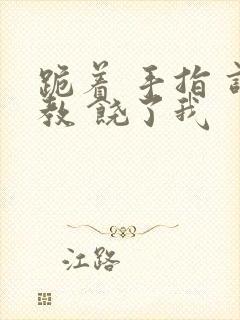 跪着 手指 
教 饶了我
江路